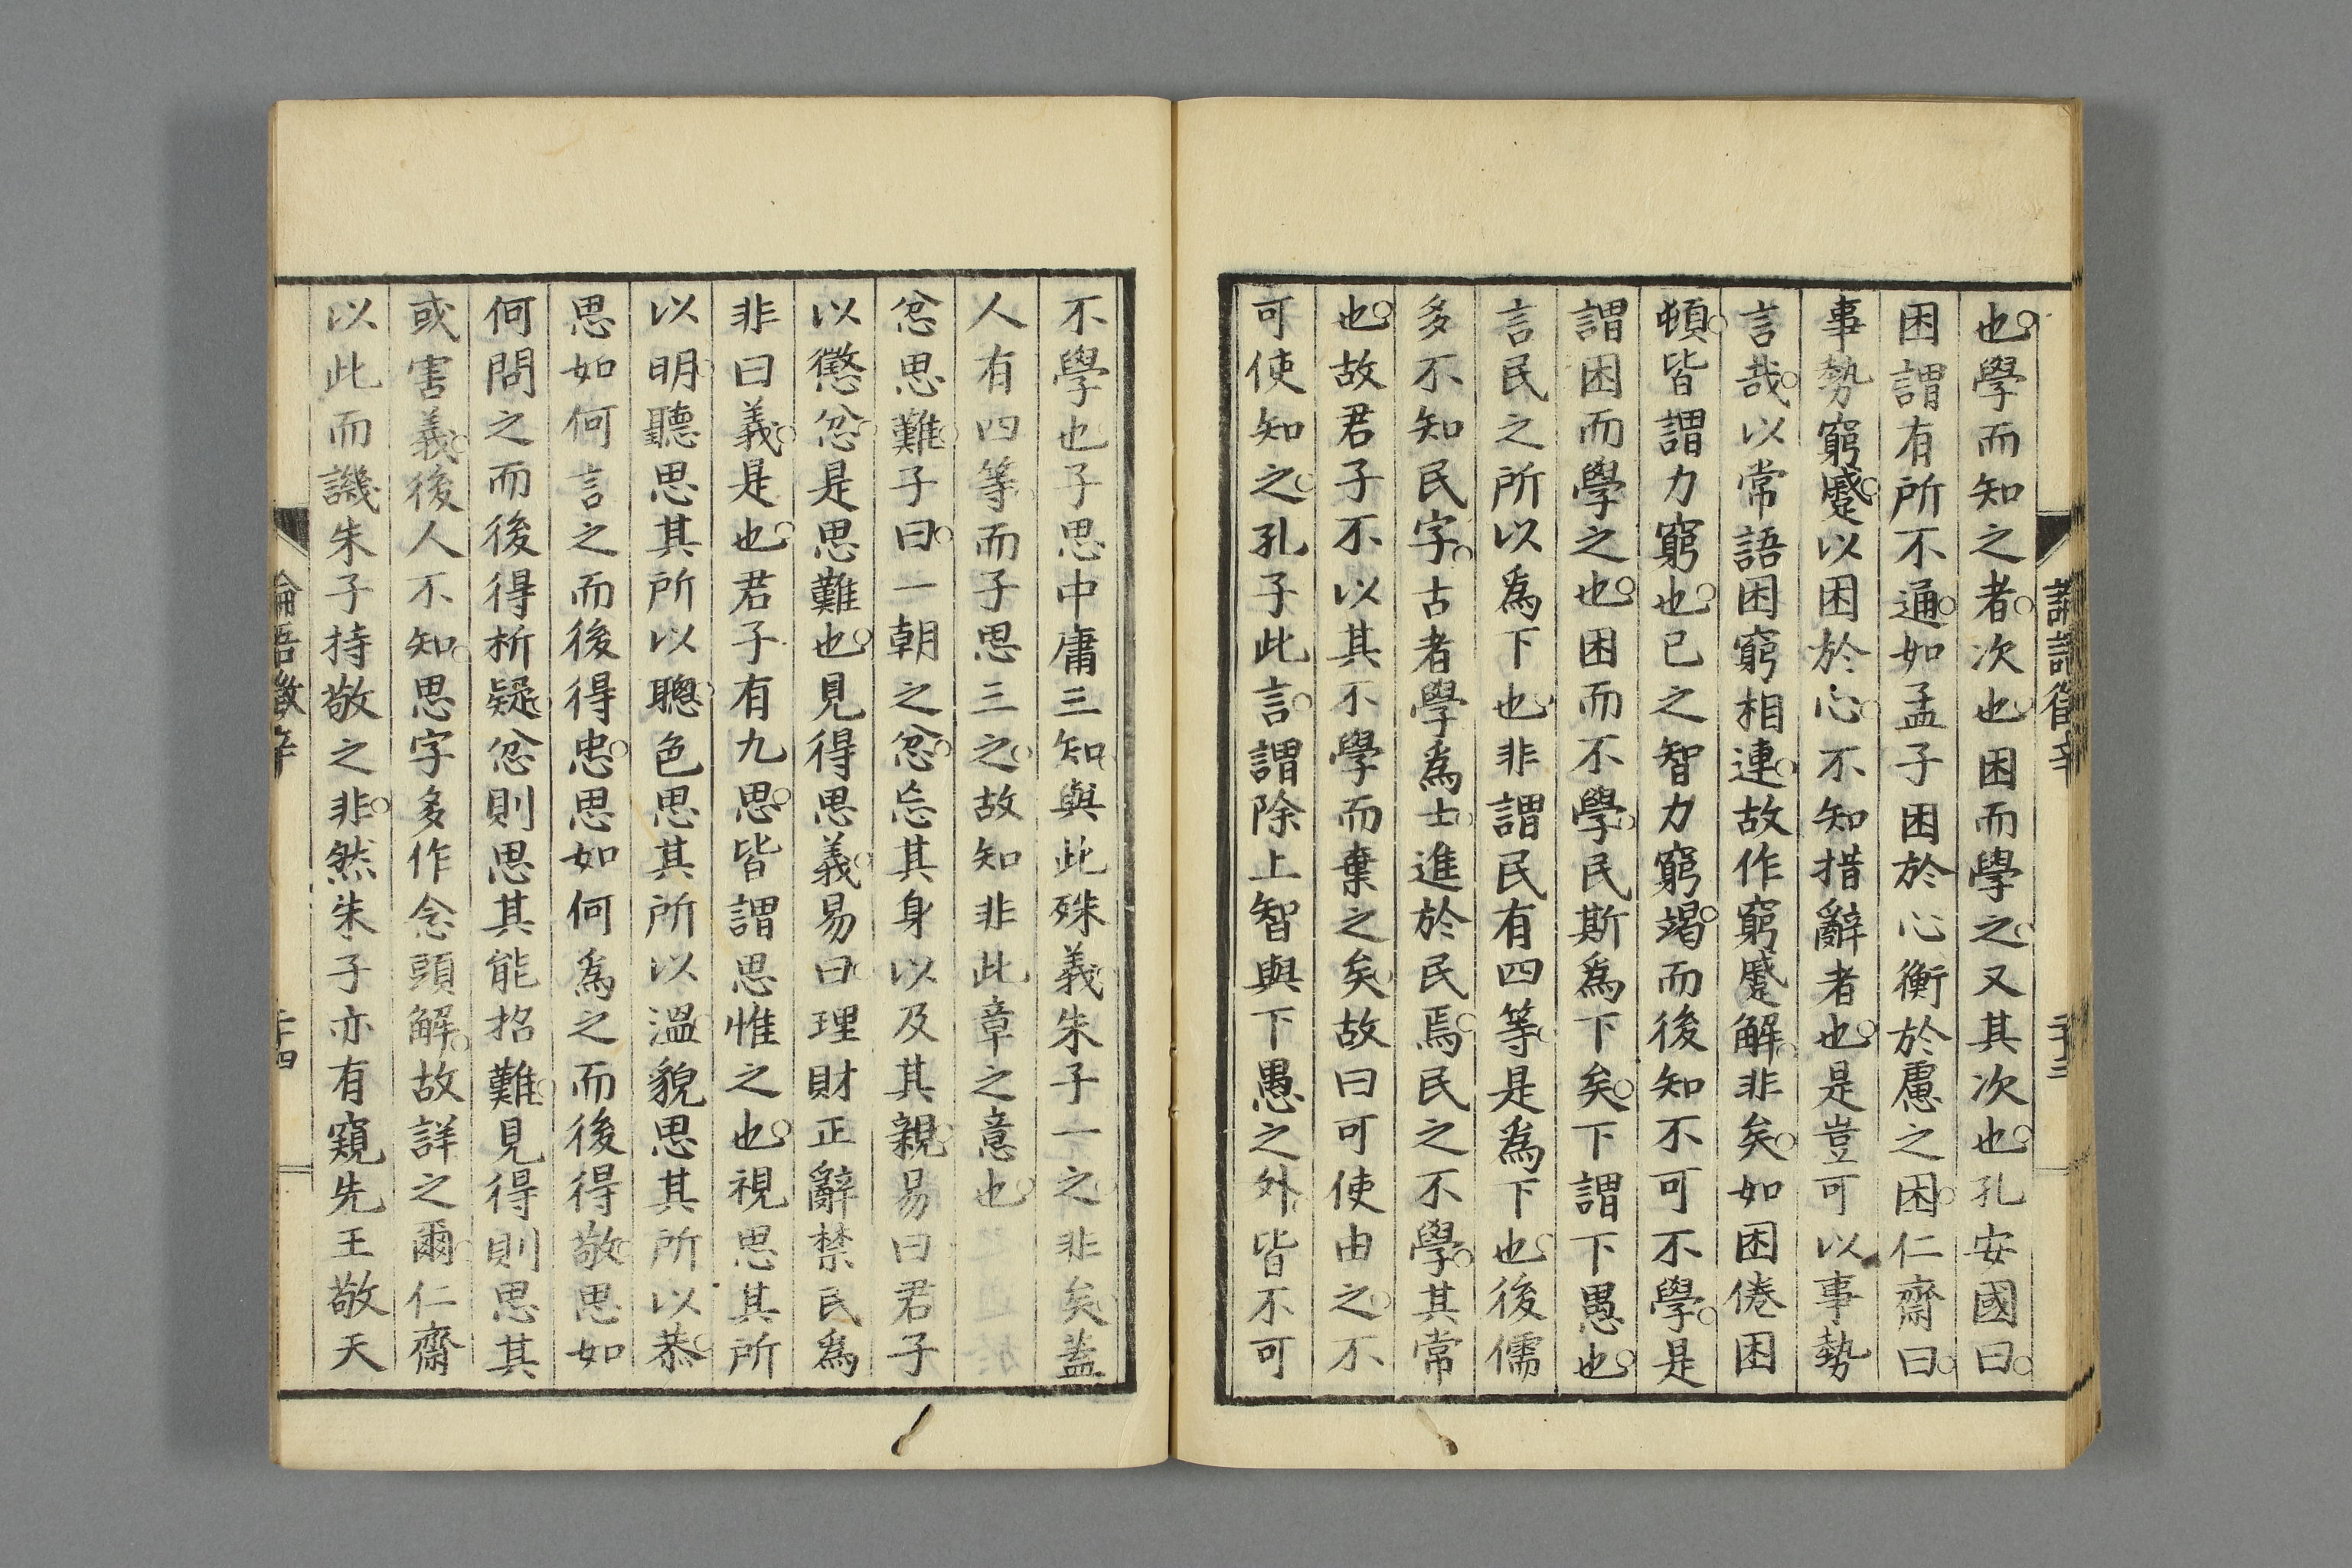 論語徵辛
二十三
也學而知之者次也困而學之又其次也孔安國曰
困謂有所不通如孟子困於心衡於慮之困仁齋曰
事勢窮蹙以困於心不知措辭者也是豈可以事勢
言哉以常語困窮相連故作窮蹙解非矣如困倦困
頓皆謂力窮也已之智力窮竭而後知不可不學是
謂困而學之也困而不學民斯爲下矣下謂下愚也
言民之所以爲下也非謂民有四等是爲下也後儒
多不知民字古者學爲士進於民焉民之不學其常
也故君子不以其不學而棄之矣故曰可使由之不
可使知之孔子此言謂除上智與下愚之外皆不可
不學也子思中庸三知與此殊義朱子一之非矣蓋
人有四等而子思三之故知非此章之意也
忿思難子曰一朝之忿忘其身以及其親易曰君子
以懲忿是思難也見得思義易曰理財正辭禁民爲
非曰義是也君子有九思思皆謂思惟之也視思其所
以明聽思其所以聰色思其所以溫貌思其所以恭
思如何言之而後得忠思如何爲之而後得敬思如
何問之而後得析疑忿則思其能招難見得則思其
或害義後人不知思字多作念頭解故詳之爾仁齋
以此而譏朱子持敬之非然朱子亦有窺先王敬天
論語徵辛
二十四